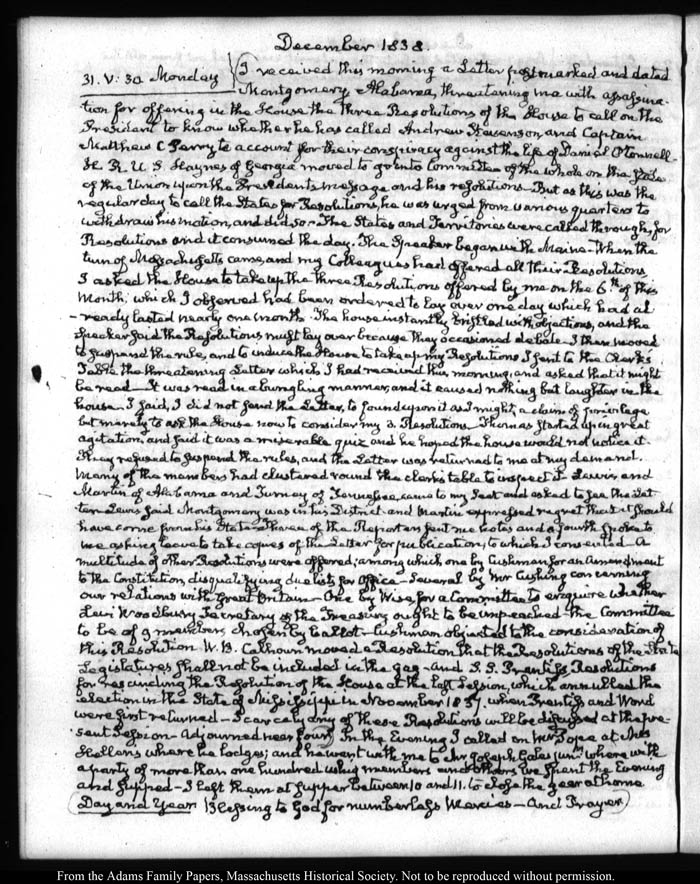 December 1838.
31. V: 30 Monday I received this morning a Letter postmarked and dated
Montgomery Alabama, threatening me with assassina-
tion for offering in the House the three Resolutions of the House to call on the
President to know whether he has called Andrew Stevenson, and Captain
Matthew C Perry to account for their conspiracy against the life of Daniel O'Connell-
H. R. U. S Haynes of Georgia moved to go into Committee of the whole on the State
of the Union upon the President's message and his resolutions - But as this was the
regular day to call the States for Resolutions, he was urged from various quarters to
withdraw his motion, and did so - The States and Territories were called through, for
Resolutions and it consumed the day. The Speaker began with Maine - When the
turn of Massachusetts came, and my Colleagues had offered all their Resolutions
I asked the House to take up the three Resolutions offered by me on the 6th of this
Month; which I observed had been ordered to lay over one day which had al
-ready lasted nearly one month. The house instantly bristled with objections, and the
Speaker said the Resolutions must lay over because they occasioned debate - I then moved
to suspend the rule, and to induce the House to take up my Resolutions I sent to the Clerk's
Table the threatening Letter which I had received this morning, and asked that it might
be read - It was read in a bungling manner, and it caused nothing but laughter in the
house - I said, I did not send the Letter, to found upon it as I might, a claim of privilege
but merely to ask the House now to consider my 3. Resolutions - Thomas started up in great
agitation, and said it was a miserable quiz and he hoped the house would not notice it.
They refused to suspend the rules, and the Letter was returned to me at my demand.
Many of the members had clustered round the clerk's table to inspect it. Lewis and
Martin of Alabama and Turney of Tennessee, came to my Seat and asked to see the Let-
ter Lewis said Montgomery was in his District and Martin expressed regret that it should
have come from his State - Three of the Reporters sent me notes and a fourth spoke to
me asking leave to take copies of the Letter for publication, to which I consented - A
multitude of other Resolutions were offered; among which one by Cushman for an Amendment
to the Constitution, disqualifying duelists for Office - Several by Mr Cushing concerning
our relations with Great Britain - One by Wise, for a Committee to enquire whether
Levi Woodbury Secretary of the Treasury ought to be impeached - the Committee
to be of 9 members, chosen by ballot - Cushman objected to the consideration of
this Resolution - W. B. Calhoun moved a Resolution that the Resolutions of the State
Legislatures shall not be included in the gag - and S. S. Prentiss Resolutions
for rescinding the Resolution of the House at the last Session, which annulled the
election in the State of Mississippi in November 1837. when Prentiss and Word
were first returned - Scarcely any of these Resolutions will be discussed at the pre-
sent Session - Adjourned near four. In the Evening I called on Mr Pope at Mrs
where he lodges; and he went with me to Mr Joseph Gales junr where with
a party of more than one hundred whig members and others we spent the Evening
and supped - I left them at supper between 10 and 11. to close the year at home
Day and Year Blessing to God for numberless Mercies - And Prayer
From the Adams Family Papers, Massachusetts Historical Society. Not to be reproduced without permission.